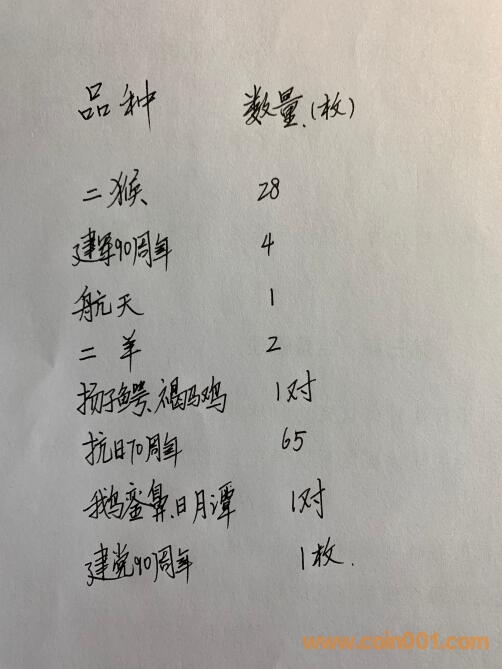 品种 数量(枚)
二猴 28
建军90周年 4
航天 1
二羊 2
扬子鳄、褐马鸡 1对
抗日70周年 65
鹅銮鼻、日月潭 1对
建党90周年 1枚.
www.coin001.com